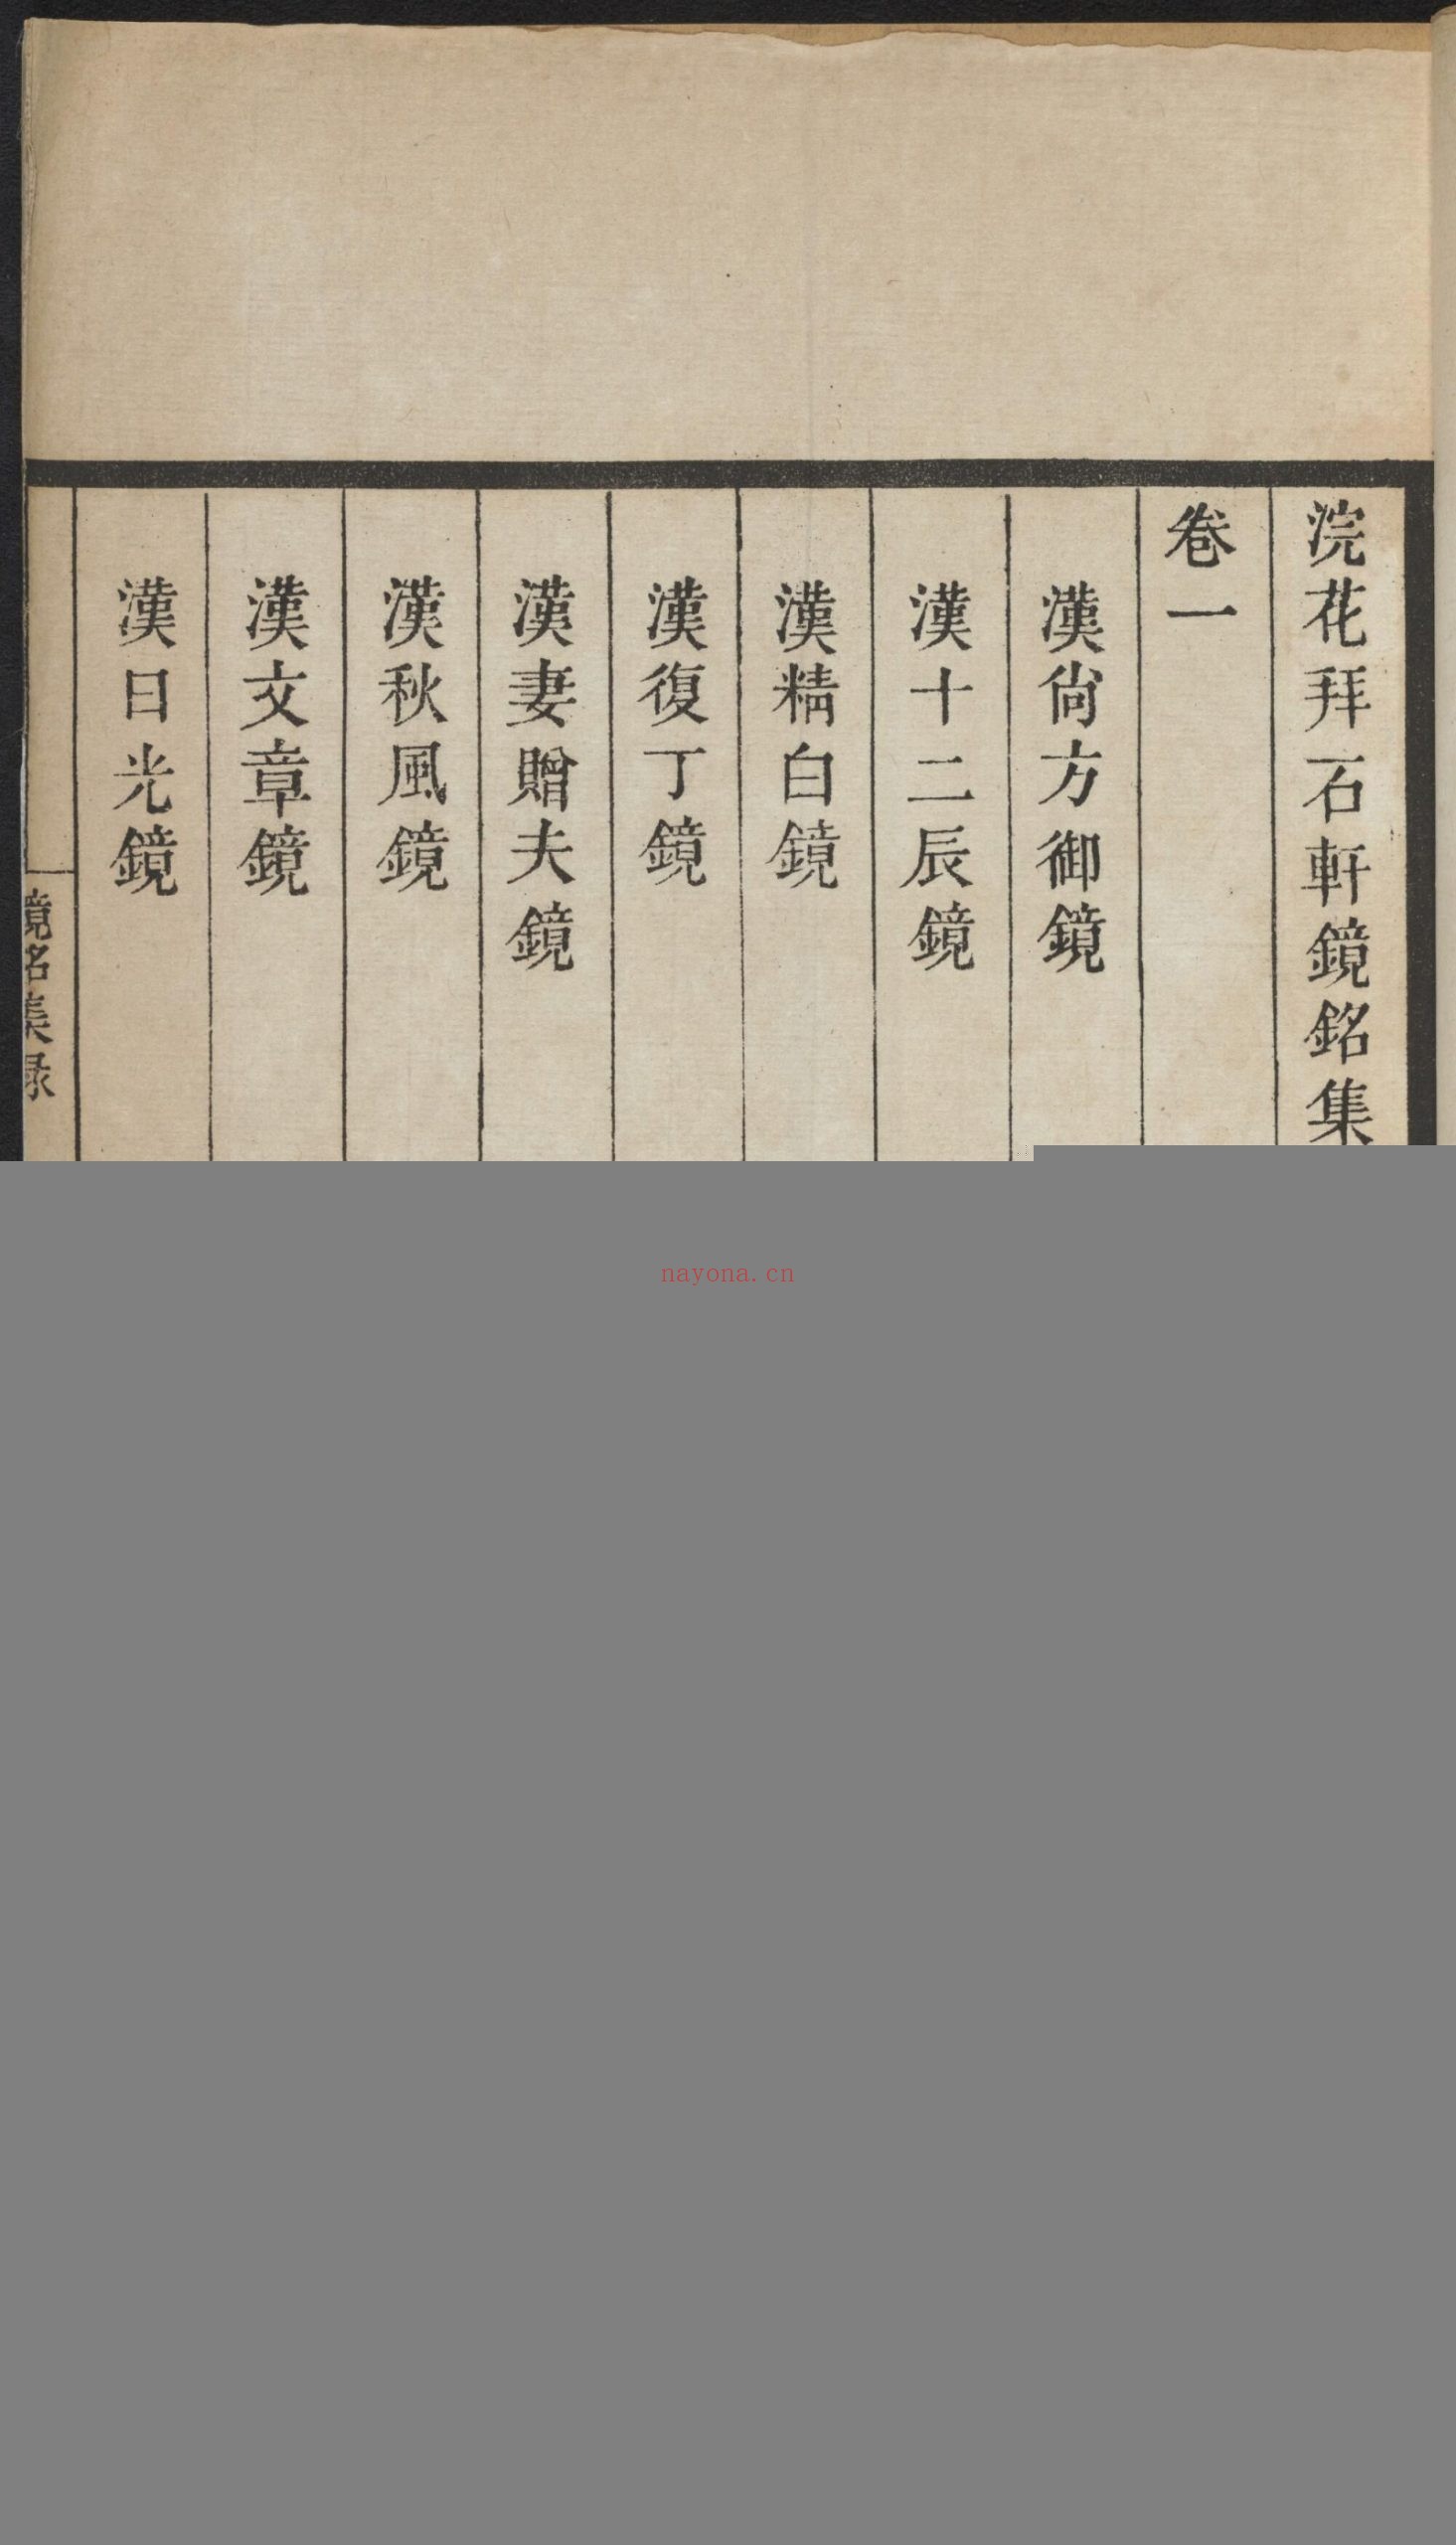 浣花拜石軒鏡銘集
卷一
漢尙方御鏡
漢十二辰鏡
漢精白鏡
漢復丁鏡
漢妻贈夫鏡
漢秋風鏡
漢文章鏡
漢日光鏡
鏡銘集录
nayona.cn